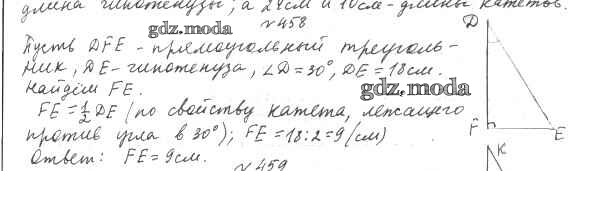 длина гипотенузы; а 24см и 10см - длины катетов.
N458
gdz.moda
Пусть DFE - прямоугольный треуголь-
ник, DE - гипотенуза, ∠D = 30°, DE = 18см.
Найдём FE.
gdz.moda
FE = 1/2 DE (по свойству катета, лежащего
против угла в 30°); FE = 18:2 = 9 (см)
Ответ: FE = 9см.
gdz.moda
N459
D
F
E
K